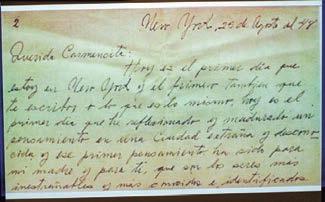 2
New York, 25 de Agosto del 48
Querida Carmencita:
Hoy es el primer día que
estoy en New York y el primero tambien que
te escribo o lo que es lo mismo, hoy es el
primer día que he reflexionado y madurado un
pensamiento en una Ciudad extraña y descono-
cida y ese primer pensamiento ha sido para
mi madre y para ti, que son los seres mas
inestrañables y mas conocidos e identificados